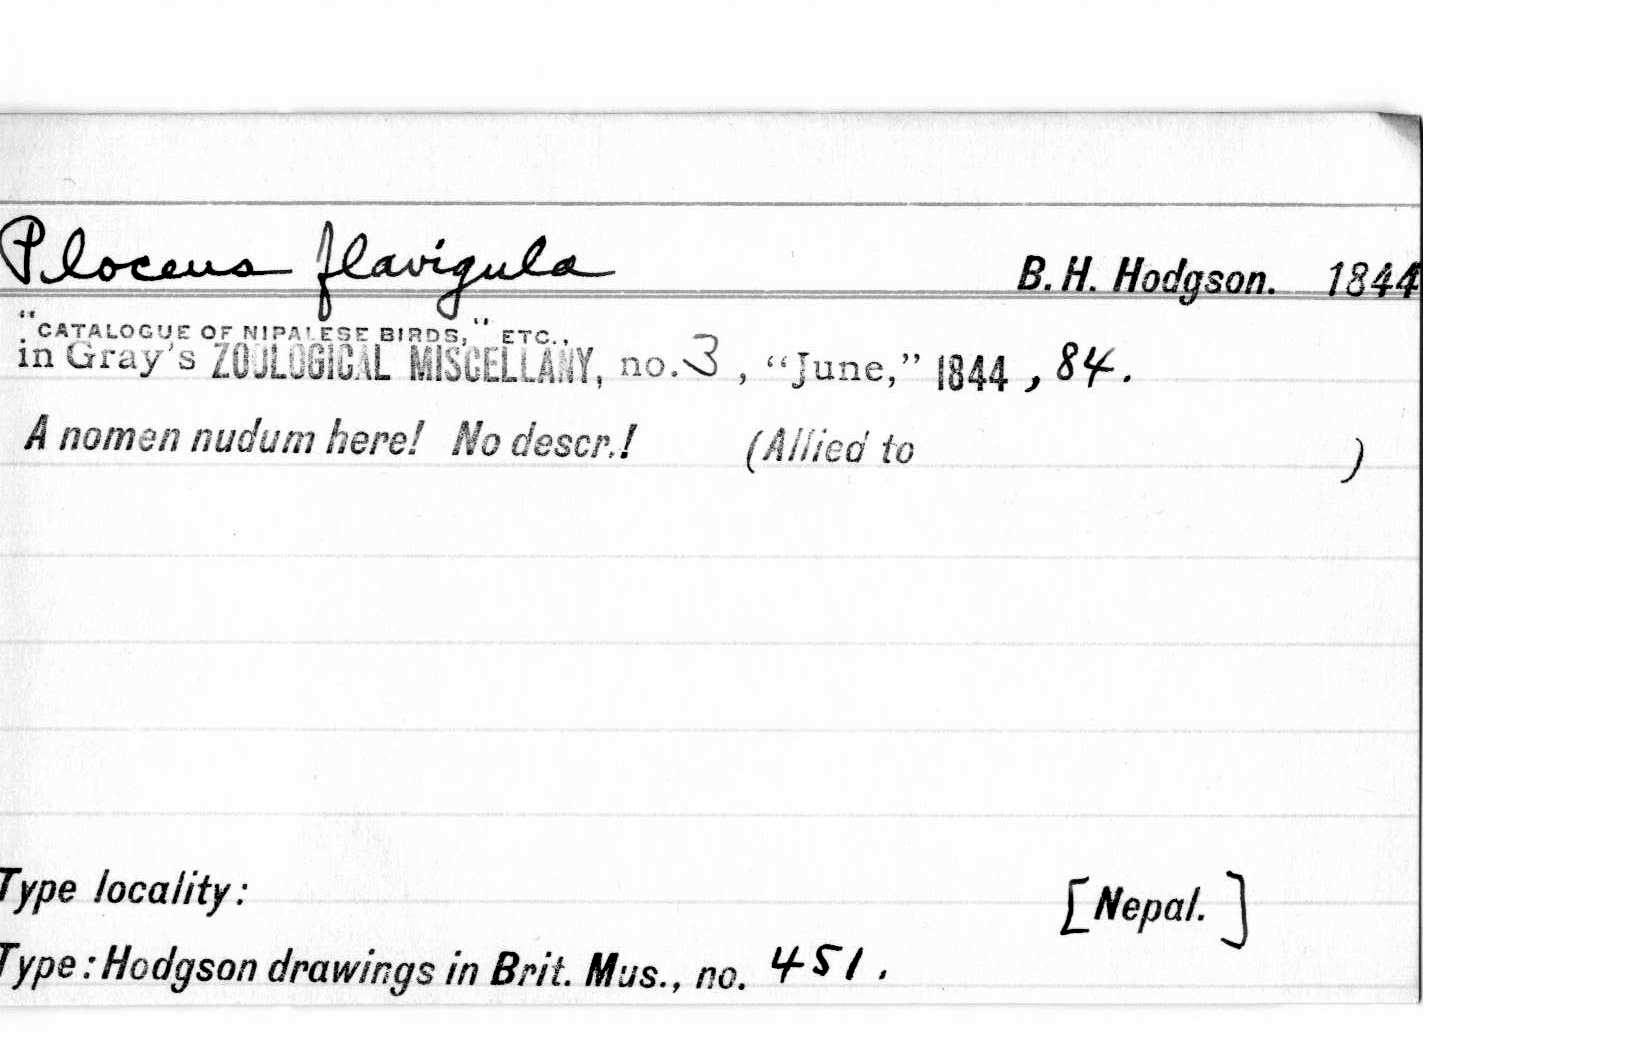 Ploceus flavigula B. H. Hodgson. 1844
"CATALOGUE OF NIPALESE BIRDS," ETC.,
in Gray's ZOOLOGICAL MISCELLANY, no. 3, "June," 1844, 84.
A nomen nudum here! No descr.! (Allied to )
Type locality: [Nepal.]
Type: Hodgson drawings in Brit. Mus., no. 451.